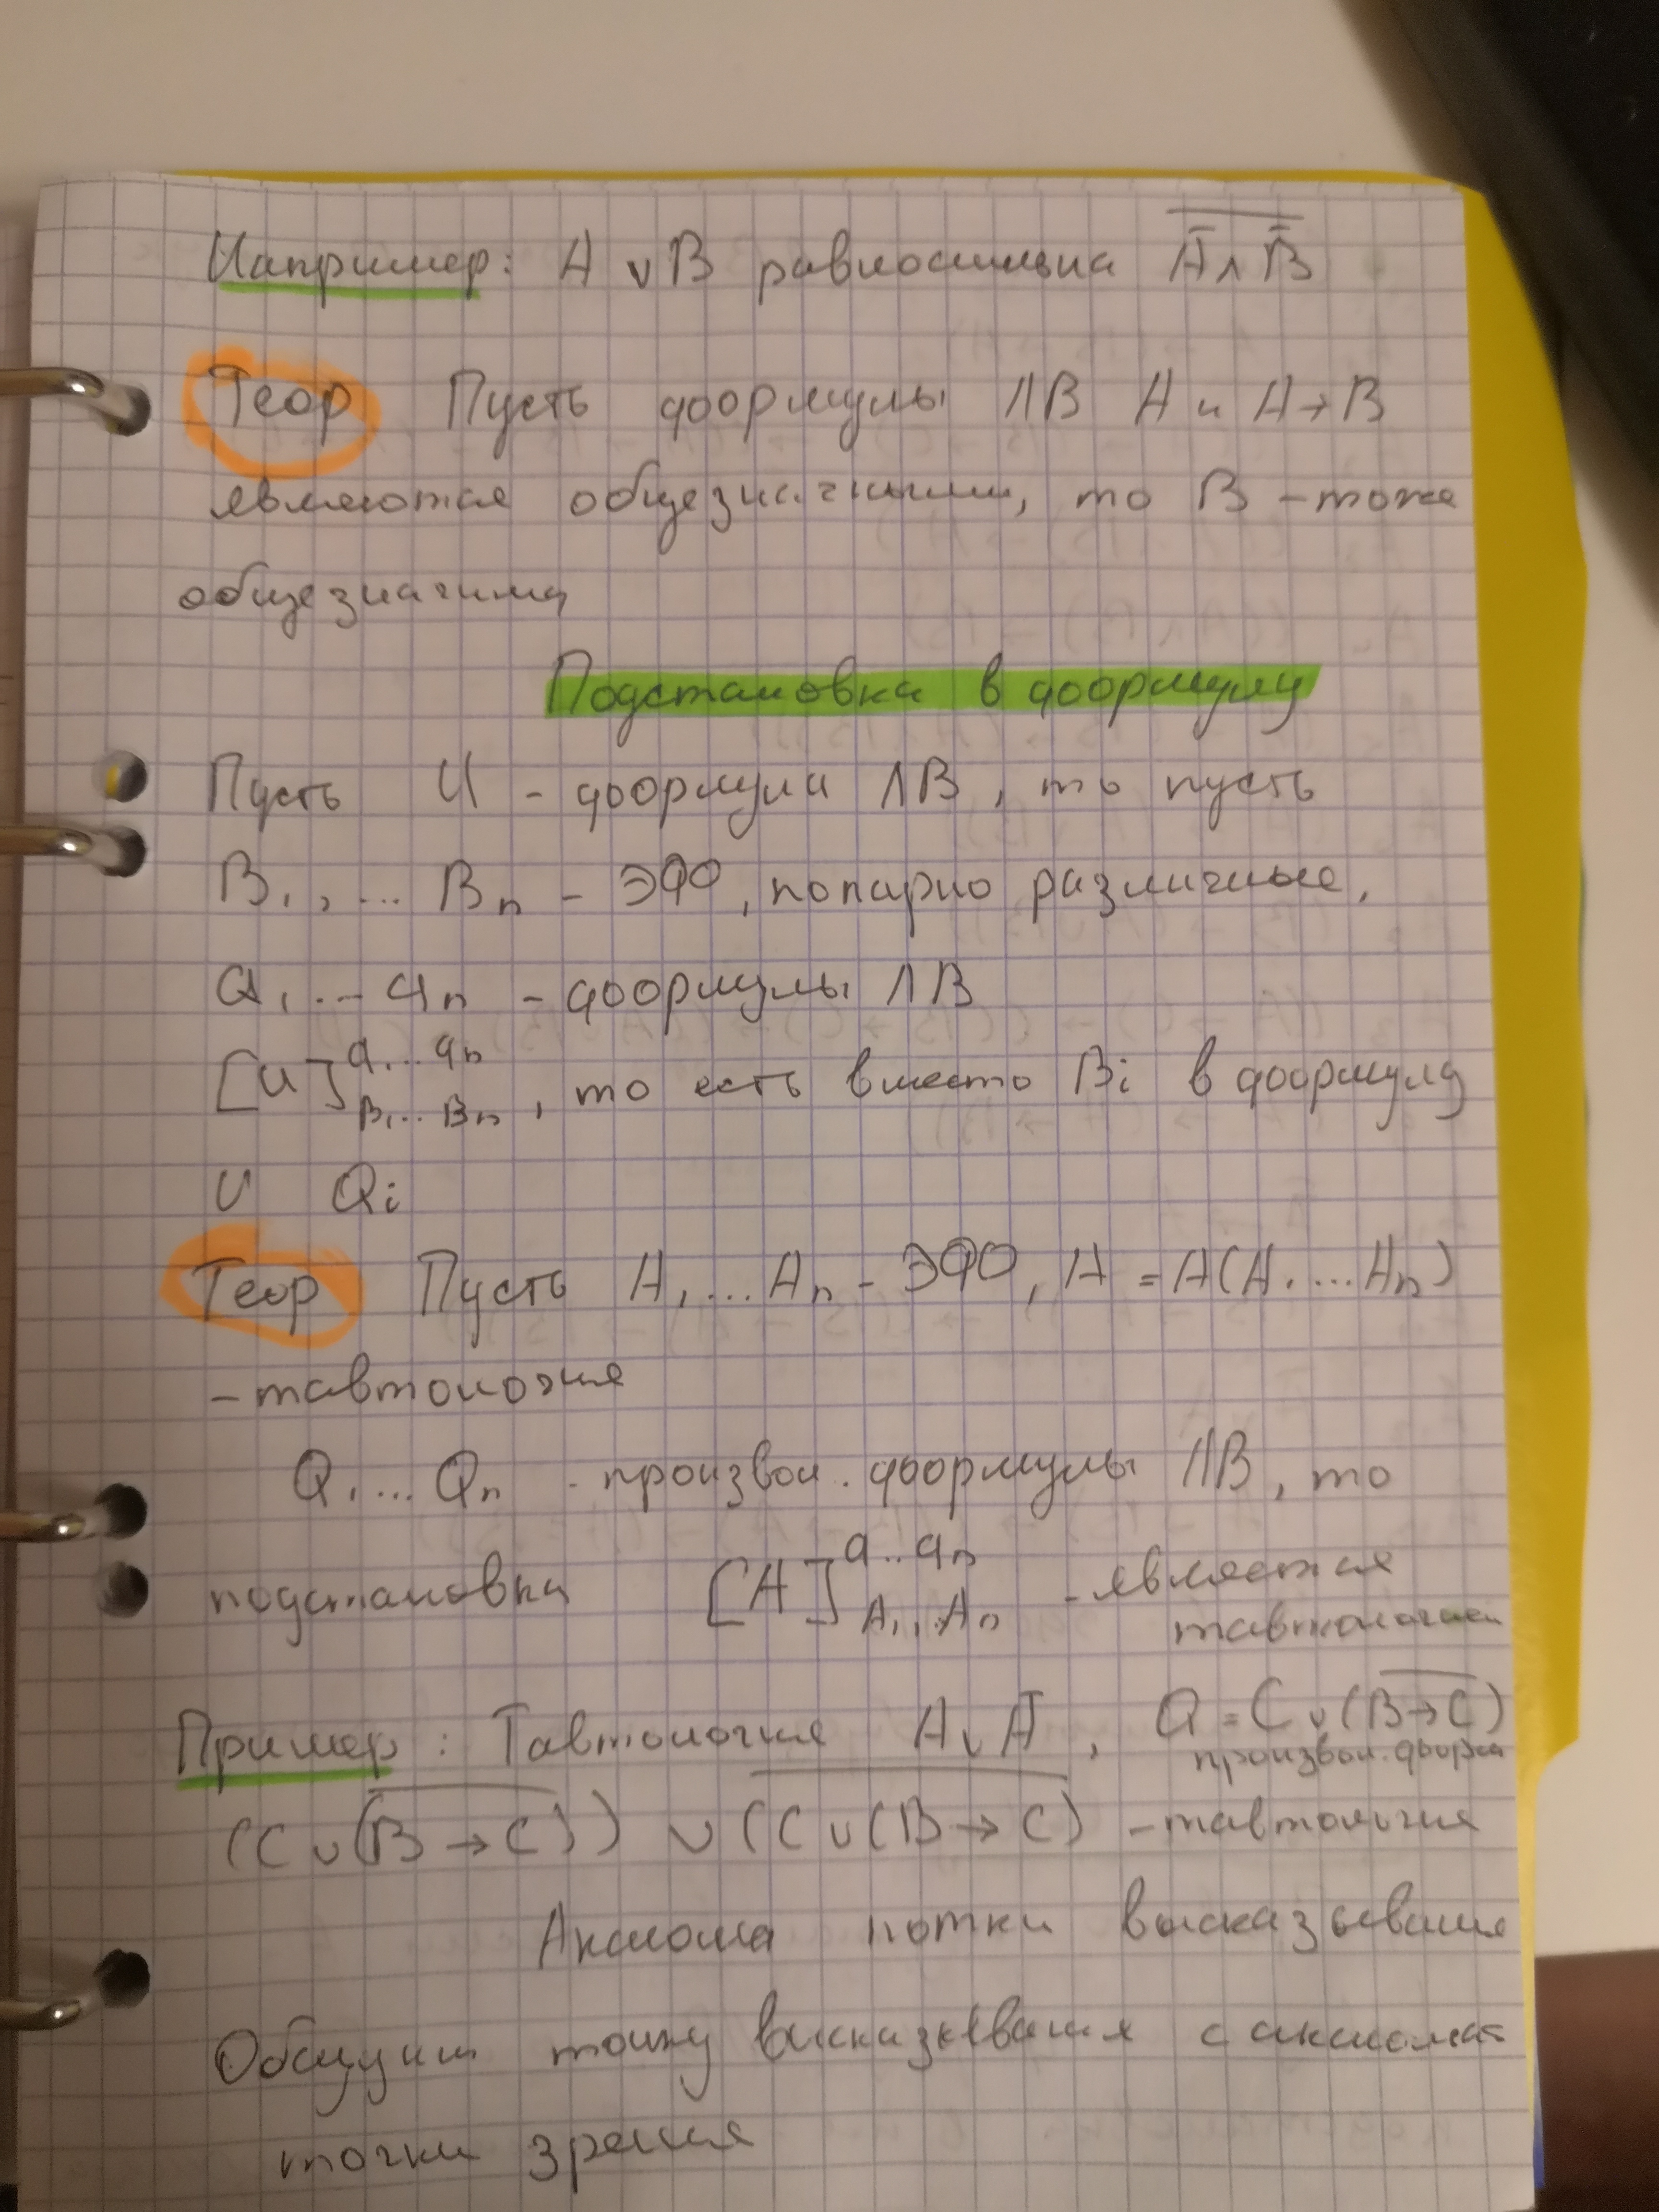 Например: A ∨ B равносильна \overline{Ā ∧ B̄}
Теор Пусть формулы ЛВ A и A→B
являются общезначимыми, то B – тоже
общезначима
Подстановка в формулу
Пусть U - формула ЛВ, то пусть
B₁, ... Bₙ - ЭФО, попарно различные,
Q₁ ... Qₙ - формулы ЛВ
[U]^{Q₁...Qₙ}_{B₁...Bₙ}, то есть вместо Bᵢ в формулу
U Qᵢ
Теор Пусть A₁...Aₙ - ЭФО, A = A(A₁...Aₙ)
- тавтология
Q₁...Qₙ - произвол. формулы ЛВ, то
подстановка [A]^{Q₁..Qₙ}_{A₁...Aₙ} - является
тавтологией
Пример: Тавтология A ∨ Ā, Q = C ∨ (\overline{B→C})
произвол. форма
(C ∨ (\overline{B→C})) ∨ \overline{(C ∨ (B→C)} - тавтология
Аксиома логики высказывания
точки зрения